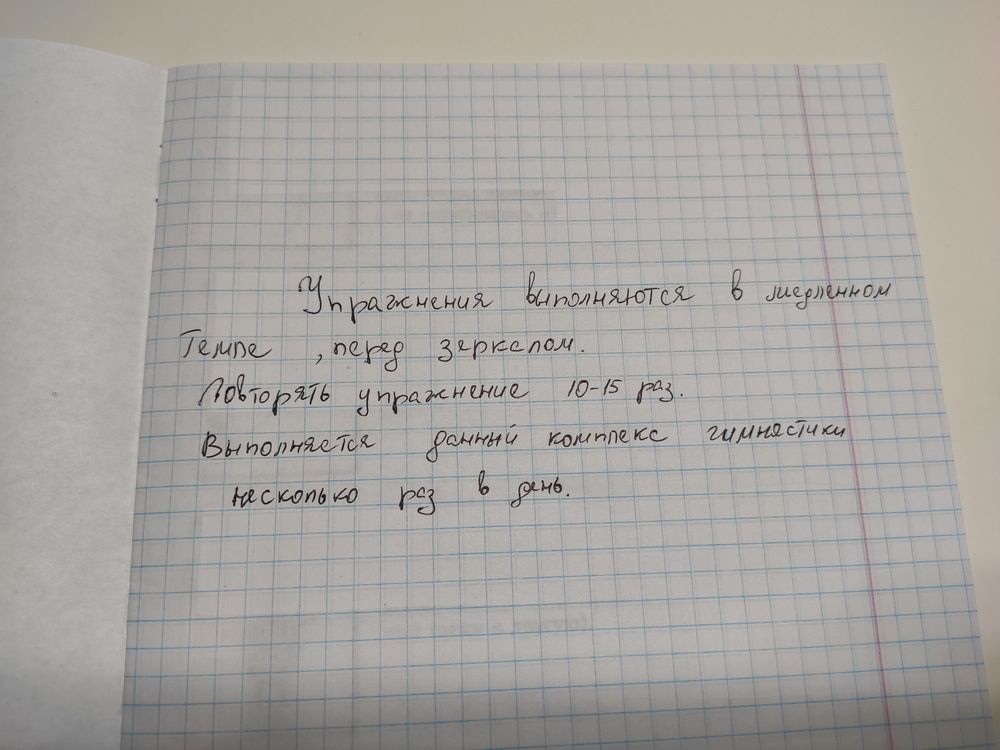 Упражнения выполняются в медленном
темпе , перед зеркалом.
Повторять упражнение 10-15 раз.
Выполняется данный комплекс гимнастики
несколько раз в день.